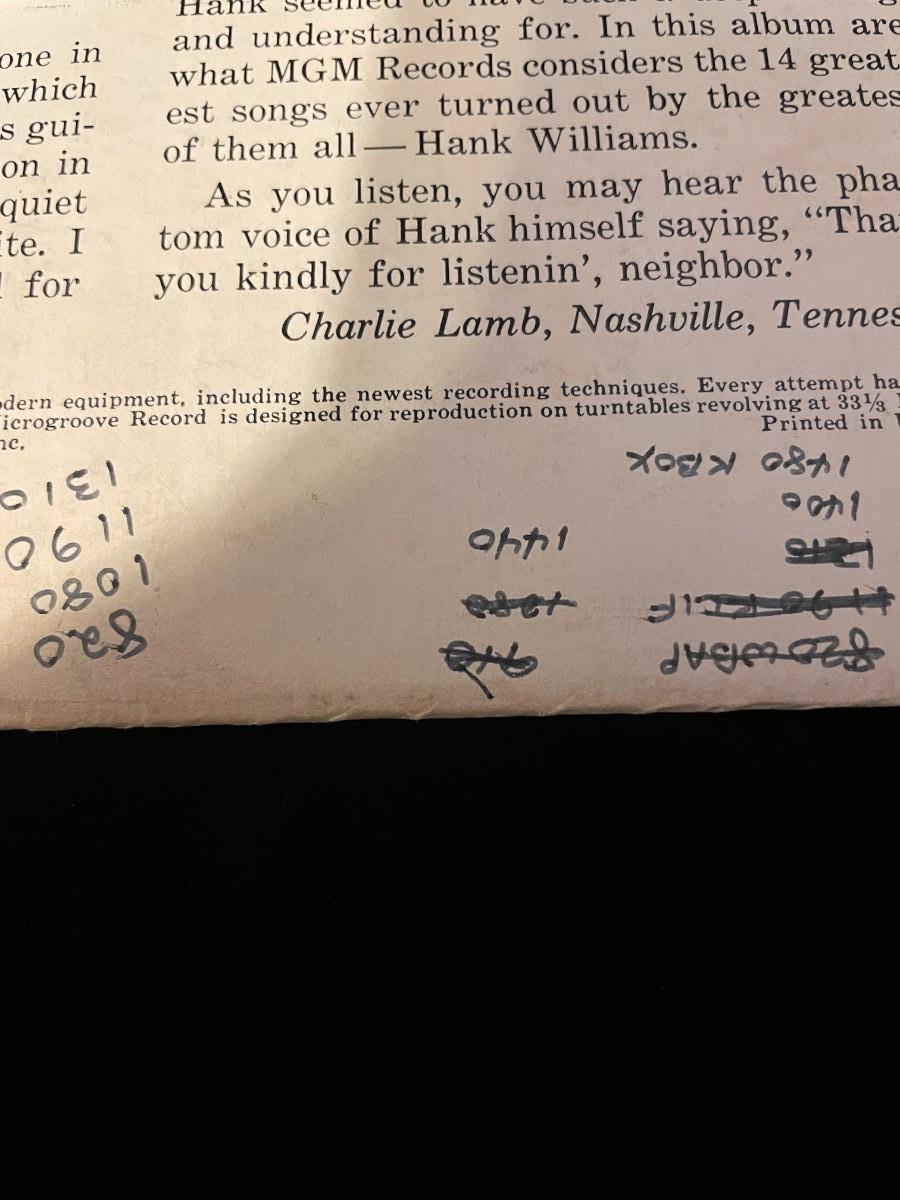 Hank seemed to have such a
and understanding for. In this album are
what MGM Records considers the 14 great
est songs ever turned out by the greates
of them all — Hank Williams.
As you listen, you may hear the pha
tom voice of Hank himself saying, “Tha
you kindly for listenin’, neighbor.”
Charlie Lamb, Nashville, Tennes
one in
which
s gui-
on in
quiet
ite. I
for
odern equipment, including the newest recording techniques. Every attempt ha
icrogroove Record is designed for reproduction on turntables revolving at 33⅓
nc.
Printed in
820 WBAP
1190 KLIF
1400
1480 KBOX
1440
820
1080
1190
1310